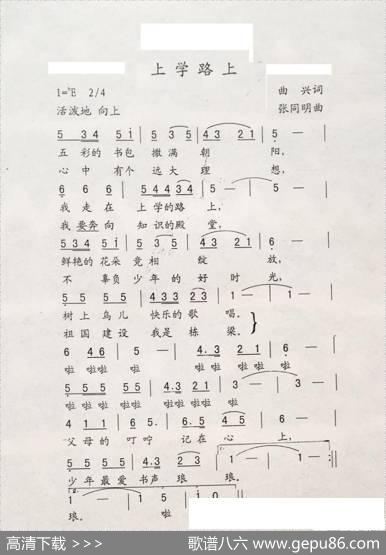 上学路上
1=♭E 2/4
曲 兴词
活泼地 向上
张同明曲
5 34 5 i | 5 3 5 | 43 21 | 5 — |
五 彩的 书包 撒满 朝 阳,
心 中 有个 远大 理 想,
6 6 6 | 5 44 34 | 5 — | 5 — |
我 走 在 上 学的 路 上,
我 要奔 向 知 识的 殿 堂,
5 34 5 i | 5 3 5 | 43 21 | 6 — |
鲜艳的 花朵 竞相 绽 放,
不 辜负 少年 的好 时 光,
5 5 5 5 | 5 43 23 | 1 — | 1 — |
树上 鸟儿 快乐的 歌 唱。
祖国 建设 我是 栋 梁。
6 46 | 5 — | 4.3 22 | 6 — |
啦 啦啦 啦 啦啦 啦啦 啦
5 5 5 5 | 4.3 21 | 3 — | 3 — |
啦啦 啦啦 啦啦 啦啦 啦
4 1 1 | 6 5. | 6 5 45 | 6 — |
父 母的 叮咛 记在 心 上,
5 5 5 5 | 4.3 23 | 1 — | 1 — :||
少年 最爱 书声 琅 琅。
1 — | 1 5 | i 0
琅。 啦
高清下载 >>>
歌谱八六 www.gepu86.com